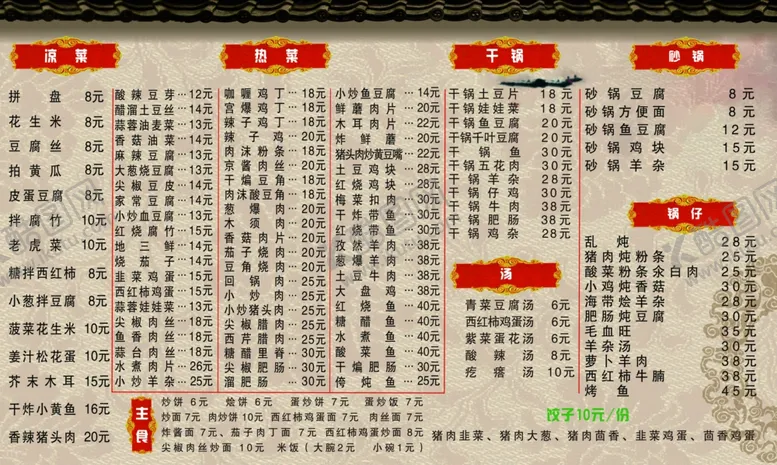 凉菜
拼盘 8元
花生米 8元
豆腐丝 8元
拍黄瓜 8元
皮蛋豆腐 8元
拌腐竹 10元
老虎菜 10元
糖拌西红柿 8元
小葱拌豆腐 8元
菠菜花生米 10元
姜汁松花蛋 10元
芥末木耳 15元
干炸小黄鱼 16元
香辣猪头肉 20元
热菜
酸辣豆芽 12元
醋溜土豆丝 12元
蒜蓉油麦菜 13元
香菇油菜 13元
麻辣豆腐 13元
大葱烧豆腐 13元
尖椒豆皮 14元
家常豆腐 13元
小炒血豆腐 13元
红烧腐竹 13元
地三鲜 14元
烧茄子 13元
韭菜鸡蛋 15元
西红柿鸡蛋 15元
蒜蓉娃娃菜 13元
尖椒肉丝 18元
鱼香肉丝 18元
蒜台肉丝 18元
水煮肉片 26元
小炒羊杂 25元
咖喱鸡丁 18元
宫爆鸡丁 18元
辣子鸡丁 18元
辣子鸡 30元
肉沫粉条 18元
京酱肉丝 20元
干煸豆角 18元
肉沫酸豆角 18元
葱爆肉 20元
木须肉 20元
香菇肉片 20元
茄子烧肉 20元
豆角烧肉 20元
回锅肉 25元
小炒肉 25元
小炒猪头肉 25元
尖椒腊肉 25元
西芹腊肉 25元
糖醋里脊 30元
尖椒肥肠 30元
溜肥肠 30元
小炒鱼豆腐 14元
鲜蘑肉片 20元
木耳肉片 20元
炸鲜蘑 20元
猪头肉炒黄豆嘴 22元
土豆鸡块 28元
红烧鸡块 30元
梅菜扣肉 30元
干炸带鱼 30元
红烧带鱼 30元
孜然羊肉 38元
葱爆羊肉 38元
土豆牛肉 38元
大盘鸡 38元
红烧鱼 40元
糖醋鱼 40元
水煮鱼 40元
酸菜鱼 40元
干煸肥肠 30元
侉炖鱼 25元
干锅
干锅土豆片 18元
干锅娃娃菜 18元
干锅鱼豆腐 20元
干锅千叶豆腐 20元
干锅鱼 30元
干锅五花肉 30元
干锅羊杂 28元
干锅仔鸡 30元
干锅牛肉 38元
干锅肥肠 38元
干锅鸡杂 38元
汤
青菜豆腐汤 6元
西红柿鸡蛋汤 6元
紫菜蛋花汤 6元
酸辣汤 8元
疙瘩汤 10元
砂锅
砂锅豆腐 8元
砂锅方便面 8元
砂锅鱼豆腐 12元
砂锅鸡块 15元
砂锅羊杂 15元
锅仔
乱炖 28元
猪肉炖粉条 25元
酸菜粉条汆白肉 25元
小鸡炖香菇 30元
海带烩羊杂 28元
肥肠炖豆腐 28元
毛血旺 35元
羊杂汤 30元
萝卜羊肉 38元
西红柿牛腩 38元
烤鱼 45元
饺子10元/份
猪肉韭菜、猪肉大葱、猪肉茴香、韭菜鸡蛋、茴香鸡蛋
主食
炒饼 6元 烩饼 7元 蛋炒饼 7元 蛋炒饭 7元
炒面 7元 肉炒饼 10元 西红柿鸡蛋面 7元 肉丝面 7元
炸酱面 7元、茄子肉丁面 7元 西红柿鸡蛋炒面 8元
尖椒肉丝炒面 10元 米饭（大腕2元 小碗1元）